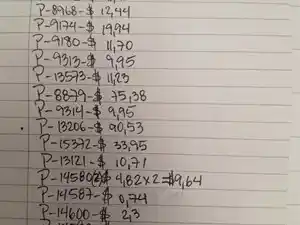 P-8968-$ 12,44
P-9174-$ 19,94
P-9180-$ 11,70
P-9313-$ 9,95
P-13573-$ 11,23
P-8879-$ 75,38
P-9314-$ 9,95
P-13206-$ 90,53
P-15372-$ 33,95
P-13121-$ 10,71
P-14580(2)$ 4,82x2=$9,64
P-14587-$ 0,74
P-14600-$ 2,3